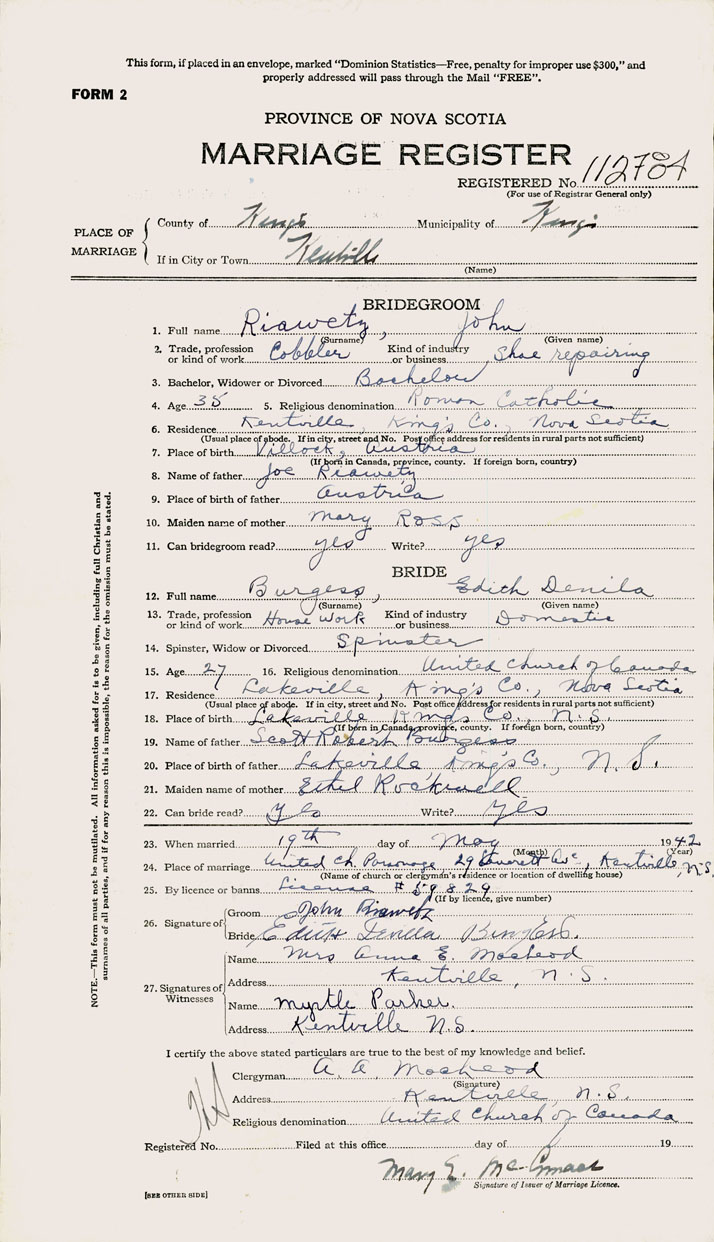 This form, if placed in an envelope, marked "Dominion Statistics—Free, penalty for improper use $300," and
properly addressed will pass through the Mail "FREE".
FORM 2
PROVINCE OF NOVA SCOTIA
MARRIAGE REGISTER
REGISTERED No. 112784
(For use of Registrar General only)
PLACE OF MARRIAGE
County of King's Municipality of King's
If in City or Town Kentville
(Name)
BRIDEGROOM
1. Full name Riawetz, John
(Surname) (Given name)
2. Trade, profession or kind of work Cobbler Kind of industry or business Shoe repairing
3. Bachelor, Widower or Divorced Bachelor
4. Age 38 5. Religious denomination Roman Catholic
6. Residence Kentville, King's Co., Nova Scotia
(Usual place of abode. If in city, street and No. Post office address for residents in rural parts not sufficient)
7. Place of birth Villock, Austria
(If born in Canada, province, county. If foreign born, country)
8. Name of father Joe Riawetz
9. Place of birth of father Austria
10. Maiden name of mother Mary Ross
11. Can bridegroom read? yes Write? yes
BRIDE
12. Full name Burgess, Edith Denila
(Surname) (Given name)
13. Trade, profession or kind of work House Work Kind of industry or business Domestic
14. Spinster, Widow or Divorced Spinster
15. Age 27 16. Religious denomination United Church of Canada
17. Residence Lakeville, King's Co., Nova Scotia
(Usual place of abode. If in city, street and No. Post office address for residents in rural parts not sufficient)
18. Place of birth Lakeville King's Co., N.S.
(If born in Canada, province, county. If foreign born, country)
19. Name of father Scott Robert Burgess
20. Place of birth of father Lakeville King's Co., N.S.
21. Maiden name of mother Ethel Rockwell
22. Can bride read? Yes Write? Yes
23. When married 19th day of May 1942
(Month) (Year)
24. Place of marriage United Ch. Parsonage, 29 Ave, Kentville, N.S.
(Name of church or clergyman's residence or location of dwelling house)
25. By licence or banns License # 59829
(If by licence, give number)
26. Signature of
Groom John Riawetz
Bride Edith Denila Burgess.
27. Signatures of Witnesses
Name Mrs Anna E. MacLeod
Address Kentville, N.S.
Name Myrtle Parker.
Address Kentville N.S.
I certify the above stated particulars are true to the best of my knowledge and belief.
Clergyman A. A. MacLeod
(Signature)
Address Kentville, N.S.
Religious denomination United Church of Canada
Registered No. Filed at this office day of 19
Mary E.
Signature of Issuer of Marriage Licence.
[SEE OTHER SIDE]
NOTE.—This form must not be mutilated. All information asked for is to be given, including full Christian and
surnames of all parties, and if for any reason this is impossible, the reason for the omission must be stated.